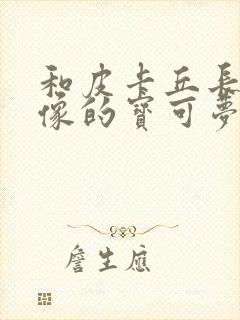 和皮卡丘長
像的寶可夢
詹生應